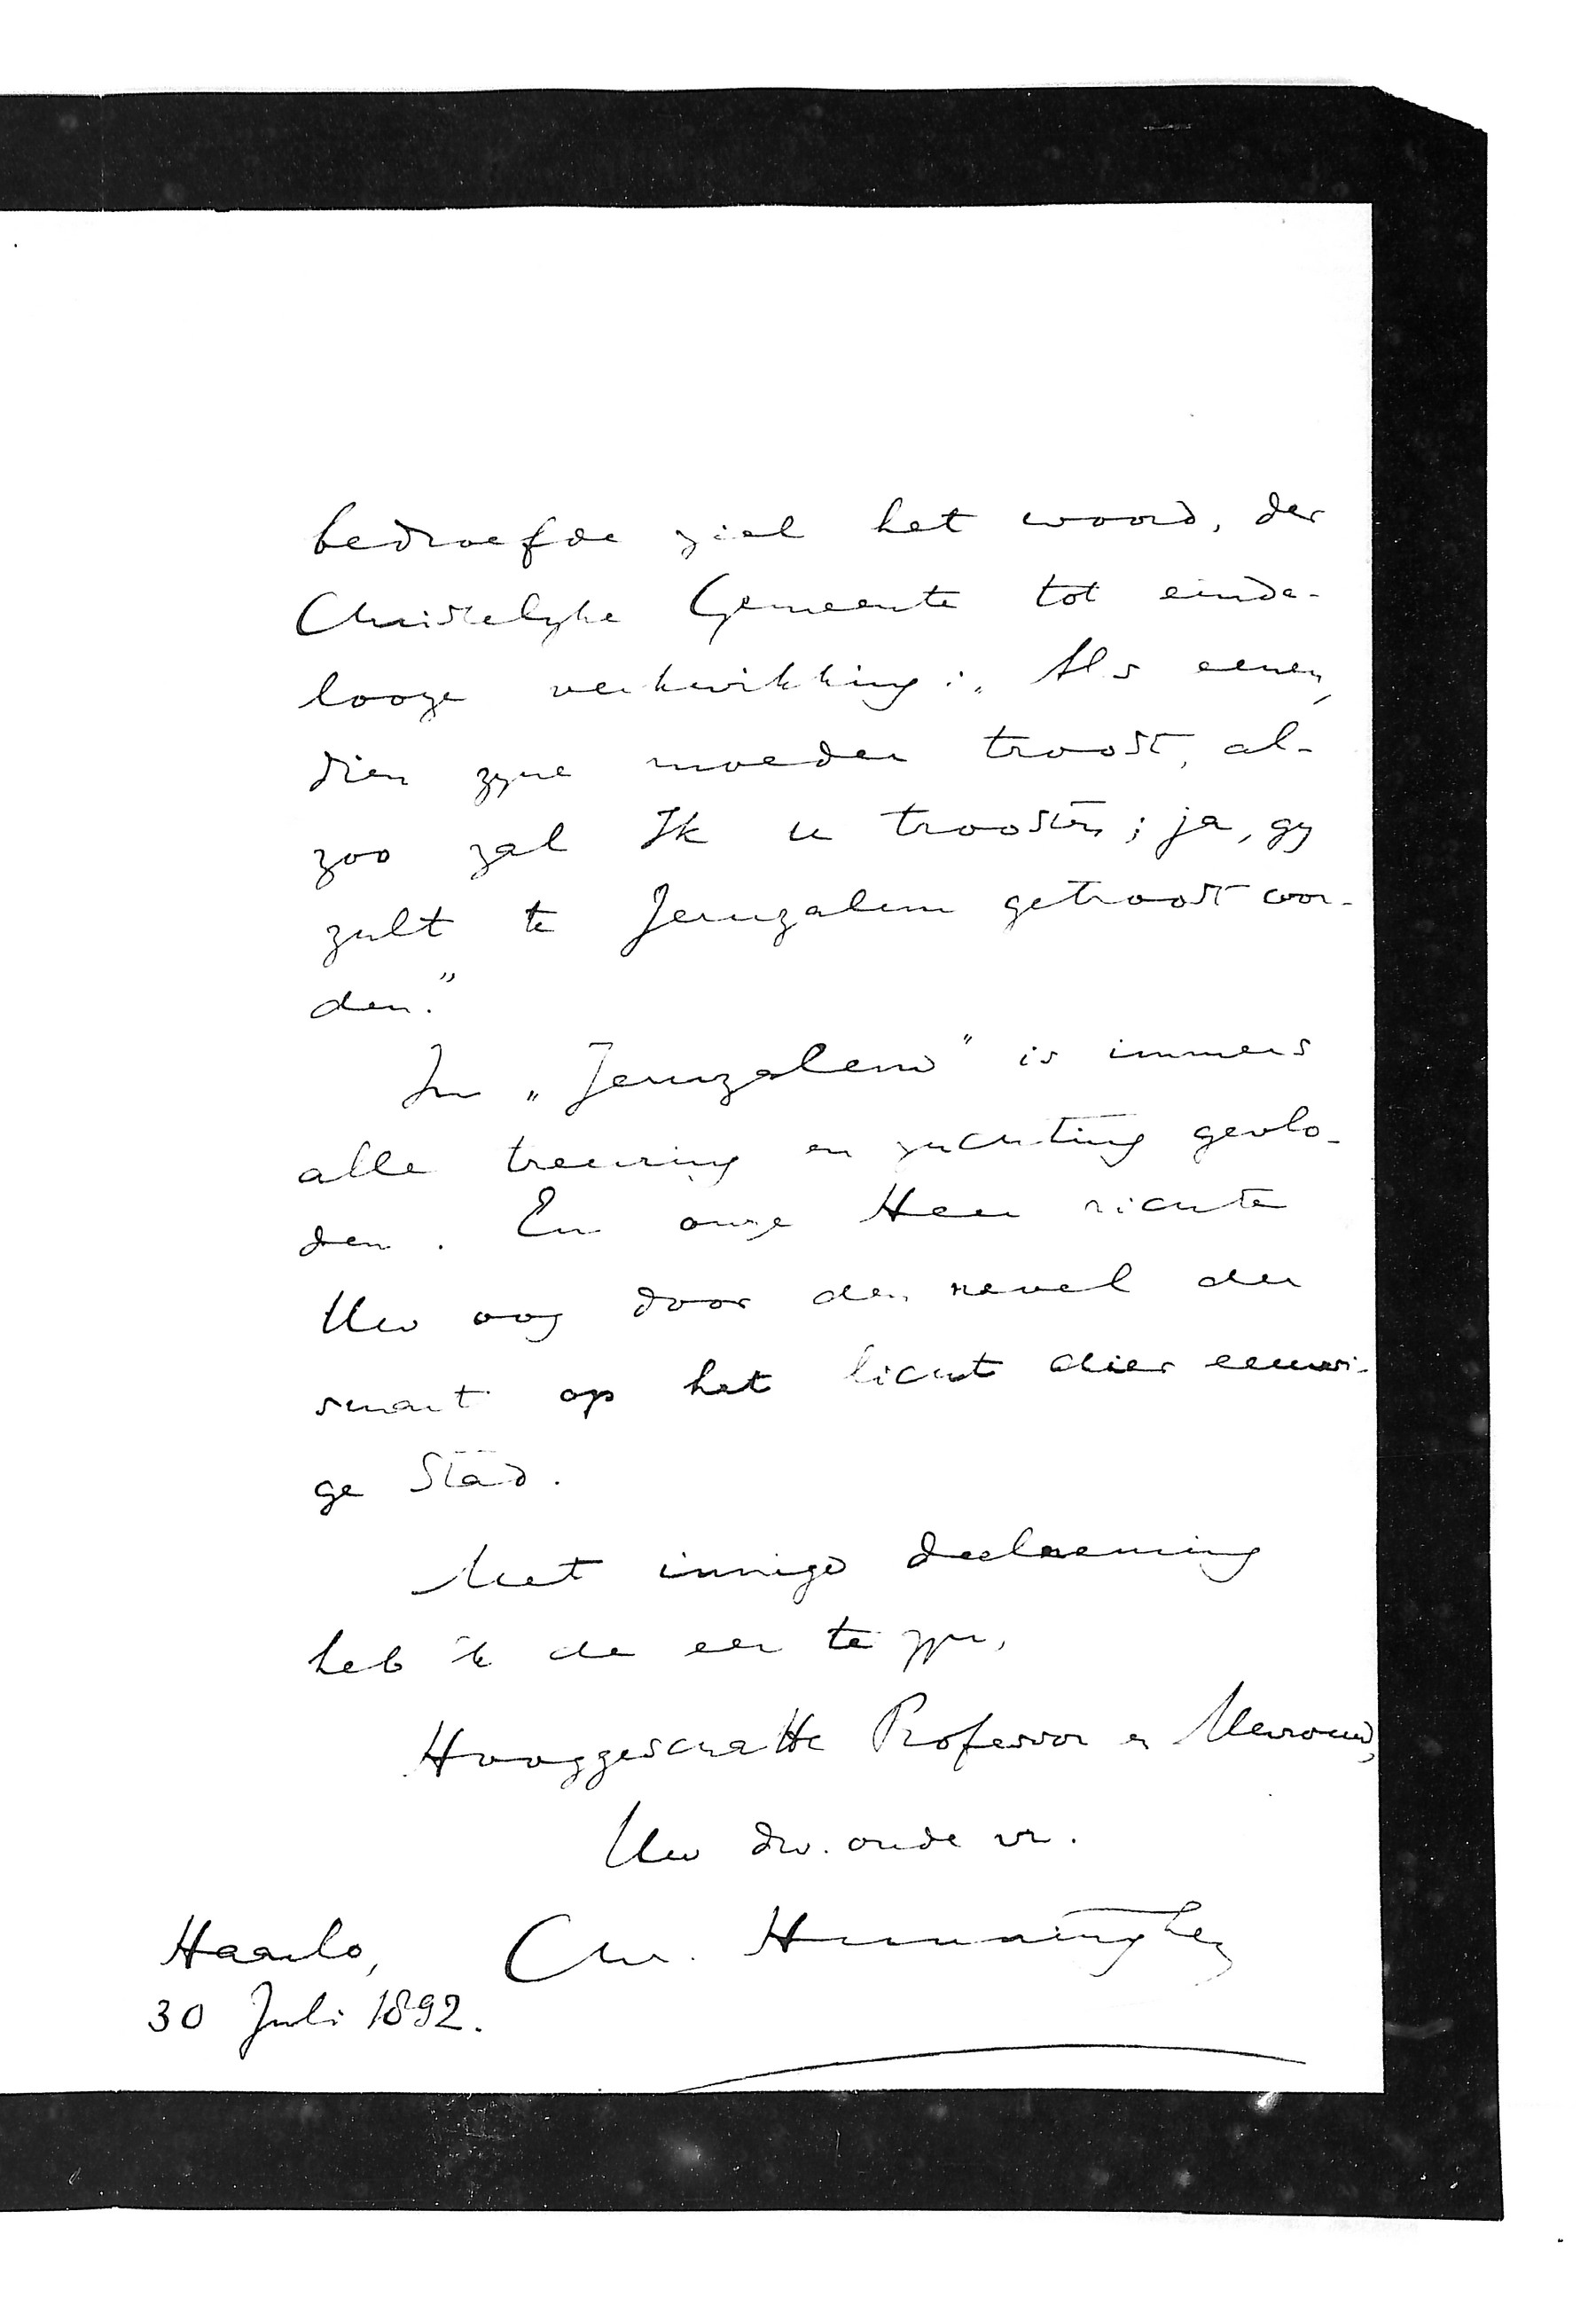 bedroefde ziel het woord, der
Christelyke Gemeente tot einde-
looze verkwikking: „Als eenen,
dien zyne moeder troost, al-
zoo zal Ik u troosten; ja, gy
zult te Jeruzalem getroost wor-
den."
In „Jeruzalem" is immers
alle treuring en zuchting gevlo-
den. En onze Heer richte
Uw oog door den nevel der
smart op het licht dier eeuwi-
ge Stad.
Met innige deelneming
heb ik de eer te zyn,
Hooggeschatte Professor en Mevrouw,
Uw dw. oude vr.
Chr. Hunningher
Haarlo,
30 Juli 1892.